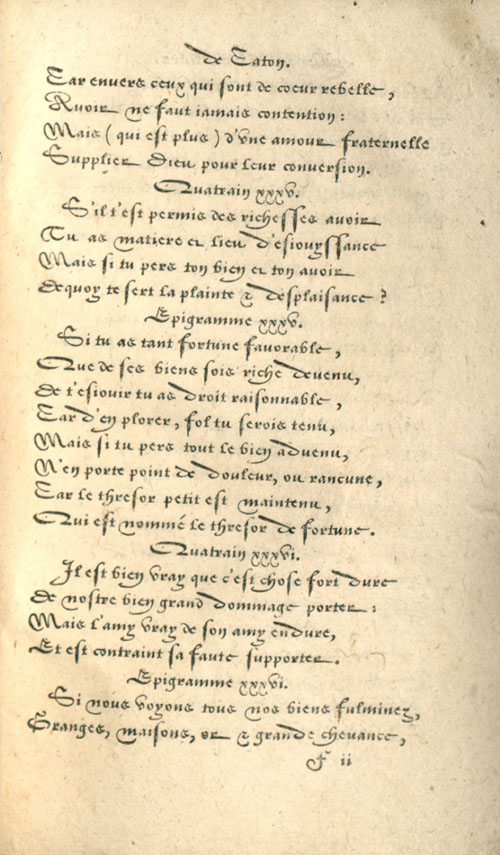 de Caton.
Car envers ceux qui sont de coeur rebelle,
Avoir ne faut iamais contention:
Mais (qui est plus) d'vne amour fraternelle
Supplier Dieu pour leur conversion.
Quatrain xxxv.
S'il t'est permis des richesses avoir
Tu as matiere et lieu d'esiouyssance
Mais si tu pers ton bien et ton avoir
Dequoy te sert la plainte & desplaisance?
Epigramme xxxv.
Si tu as tant fortune favorable,
Que de ses biens sois riche devenu,
De t'esiouir tu as droit raisonnable,
Car d'en plorer, fol tu serois tenu,
Mais si tu pers tout le bien advenu,
N'en porte point de douleur, ou rancune,
Car le thresor petit est maintenu,
Qui est nommé le thresor de fortune.
Quatrain xxxvi.
Il est bien vray que c'est chose fort dure
De nostre bien grand dommage porter:
Mais l'amy vray de son amy endure,
Et est contraint sa faute supporter.
Epigramme xxxvi.
Si nous voyons tous nos biens fulminez,
Granges, maisons, or & grande chevance,
F ii